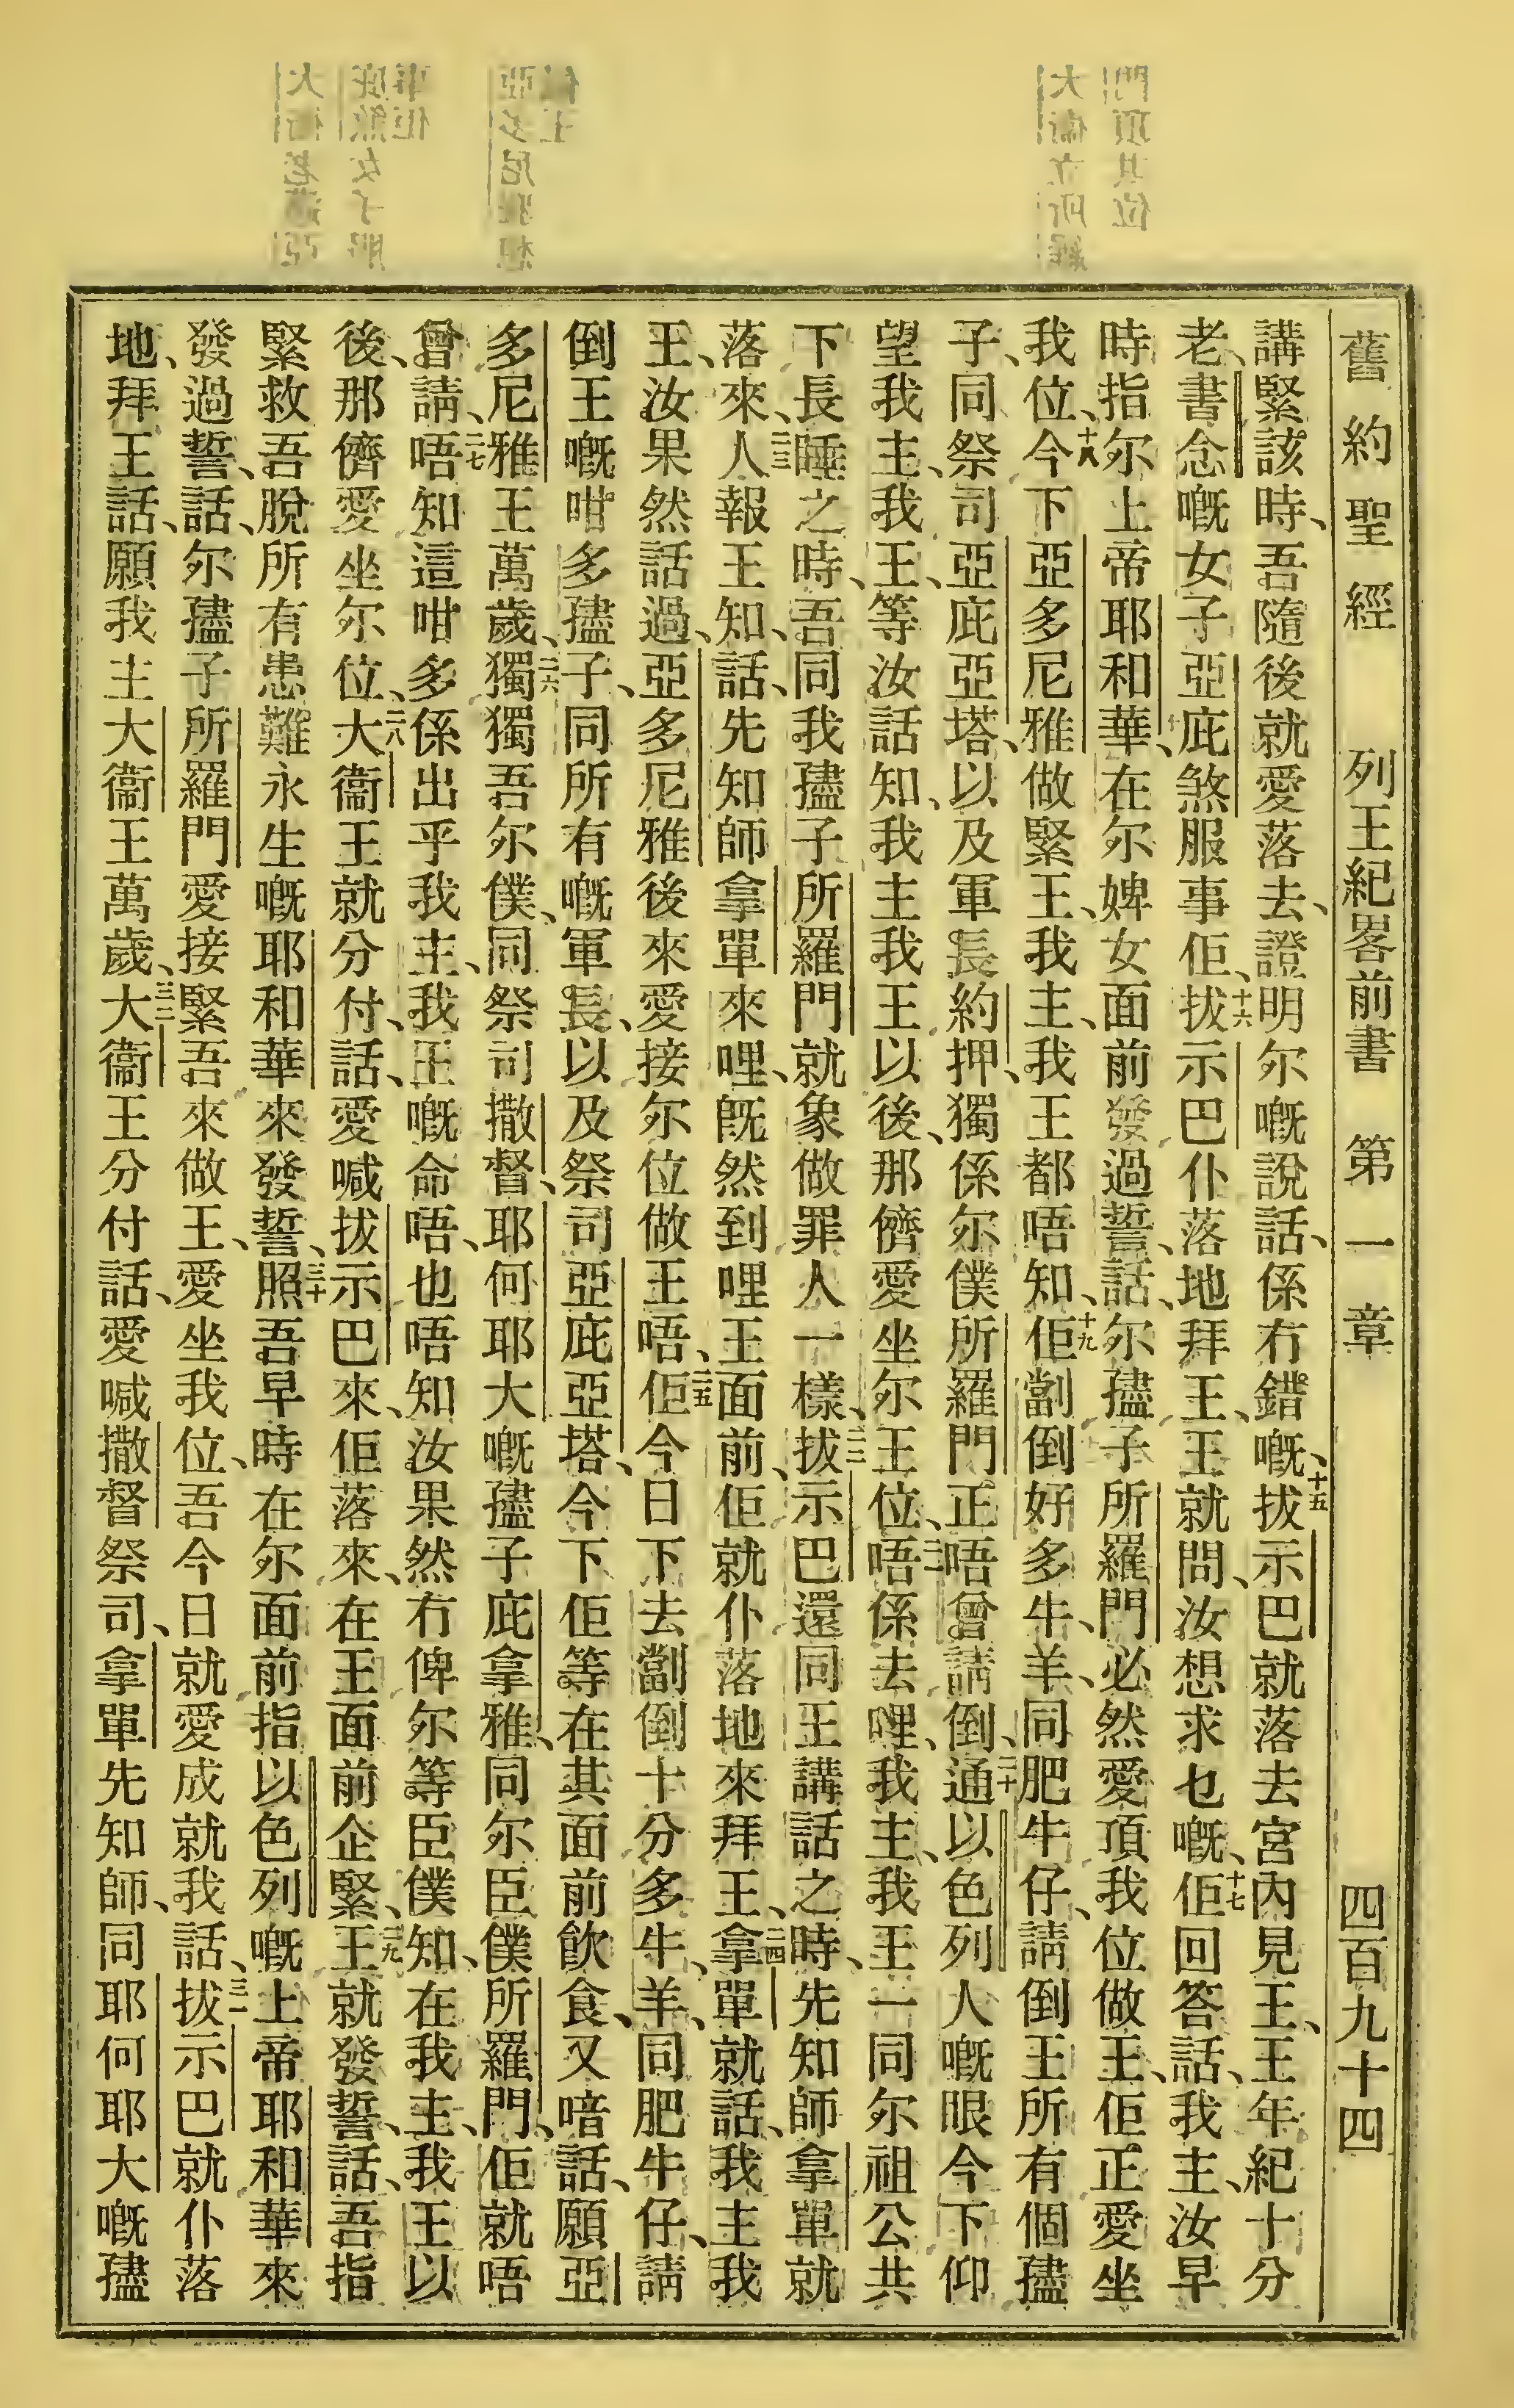 舊約聖經　列王紀畧前書　第一章　四百九十四
講緊該時、吾隨後就愛落去、證明尔嘅說話、係冇錯嘅、十五拔示巴就落去宮內見王、王年紀十分
老、書念嘅女子亞庇煞服事佢、十六拔示巴仆落地拜王、王就問、汝想求乜嘅、十七佢回答話、我主、汝早
時指尔上帝耶和華、在尔婢女面前發過誓、話、尔孻子所羅門必然愛頂我位做王、佢正愛坐
我位、十八今下亞多尼雅做緊王、我主、我王都唔知、十九佢劏倒好多牛、羊、同肥牛仔、請倒王所有個孻
子、同祭司亞庇亞塔、以及軍長約押、獨係尔僕所羅門正唔曾請倒、二十通以色列人嘅眼今下仰
望我主、我王、等汝話知、我主我王以後、那儕愛坐尔王位、二一唔係去哩、我主、我王一同尔祖公共
下長睡之時、吾同我孻子所羅門就象做罪人一樣、二二拔示巴還同王講話之時、先知師拿單就
落來、二三人報王知、話、先知師拿單來哩、既然到哩王面前、佢就仆落地來拜王、二四拿單就話、我主我
王、汝果然話過、亞多尼雅後來愛接尔位做王唔、二五佢今日下去劏倒十分多牛、羊、同肥牛仔、請
倒王嘅咁多孻子、同所有嘅軍長、以及祭司亞庇亞塔、今下佢等在其面前飲食、又喑話、願亞
多尼雅王萬歲、二六獨獨吾尔僕、同祭司撒督、耶何耶大嘅孻子庇拿雅、同尔臣僕所羅門、佢就唔
曾請、二七唔知這咁多係出乎我主、我王嘅命唔、也唔知汝果然冇俾尔等臣僕知、在我主、我王以
後、那儕愛坐尔位、二八大衞王就分付、話、愛喊拔示巴來、佢落來、在王面前企緊、二九王就發誓、話、吾指
緊救吾脫所有患難永生嘅耶和華來發誓、三十照吾早時在尔面前指以色列嘅上帝耶和華來
發過誓、話、尔孻子所羅門愛接緊吾來做王、愛坐我位、吾今日就愛成就我話、三一拔示巴就仆落
地、拜王話、願我主大衞王萬歲、三二大衞王分付話、愛喊撒督祭司、拿單先知師、同耶何耶大嘅孻